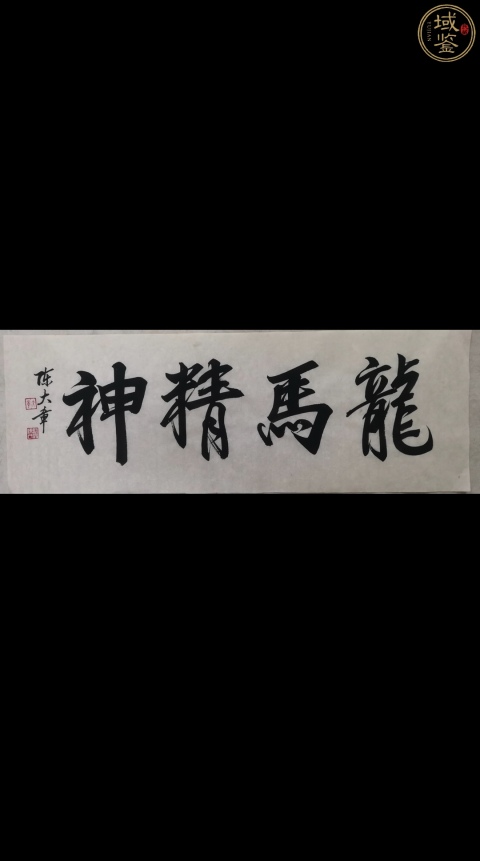 龍馬精神
陈大章
域鉴
YUJIAN